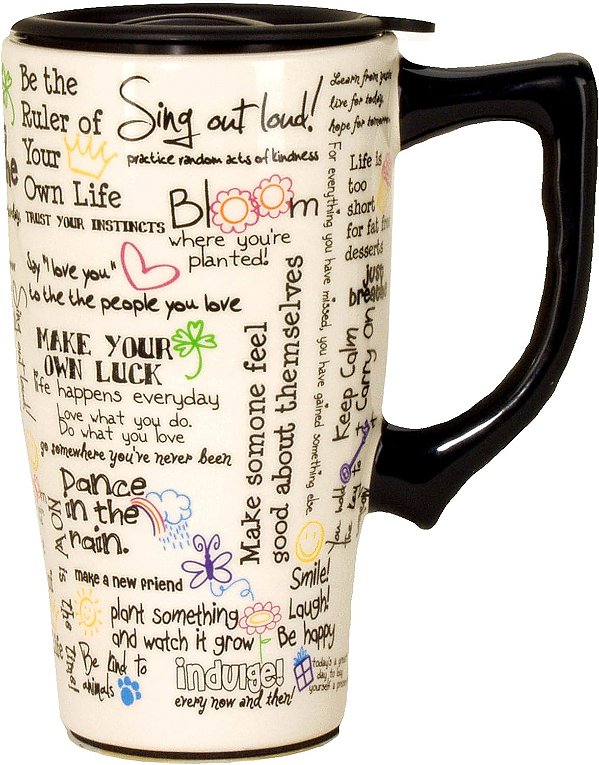 Be the
Ruler of
Your
Own Life
Sing out loud!
practice random acts of kindness
Learn from
live for today,
hope for tomorrow
TRUST YOUR INSTINCTS
Bloom
where you're
planted!
Life is
too
short
for fat free
desserts
just
breathe
Say "I love you"
to the the people you love
For everything you have missed, you have gained something else.
MAKE YOUR
OWN LUCK
life happens everyday
Love what you do.
Do what you love
go somewhere you've never been
Make somone feel
good about themselves
Keep Calm
Carry On
You hold
the key to
Dance
in the
rain.
NOW is the time!
make a new friend
Smile!
Laugh!
Be happy
plant something
and watch it grow
Be kind to
animals
indulge!
every now and then!
today's a great
day to buy
yourself a present